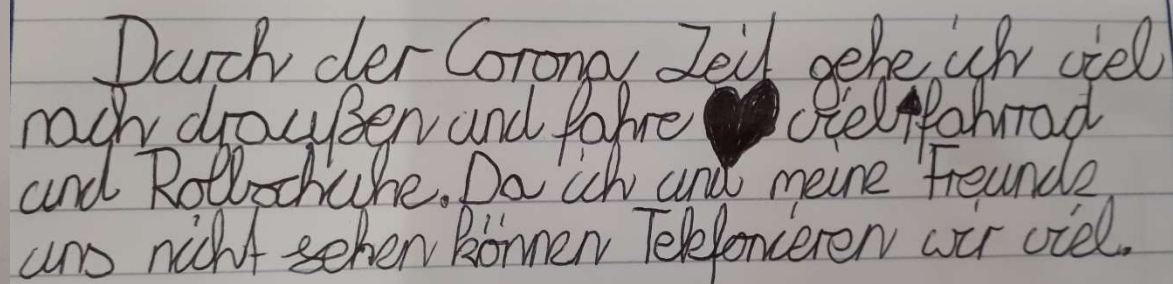 Durch der Corona Zeit gehe ich viel
nach draußen und fahre viel fahrrad
und Rollschuhe. Da ich und meine Freunde
uns nicht sehen können Telefonieren wir viel.